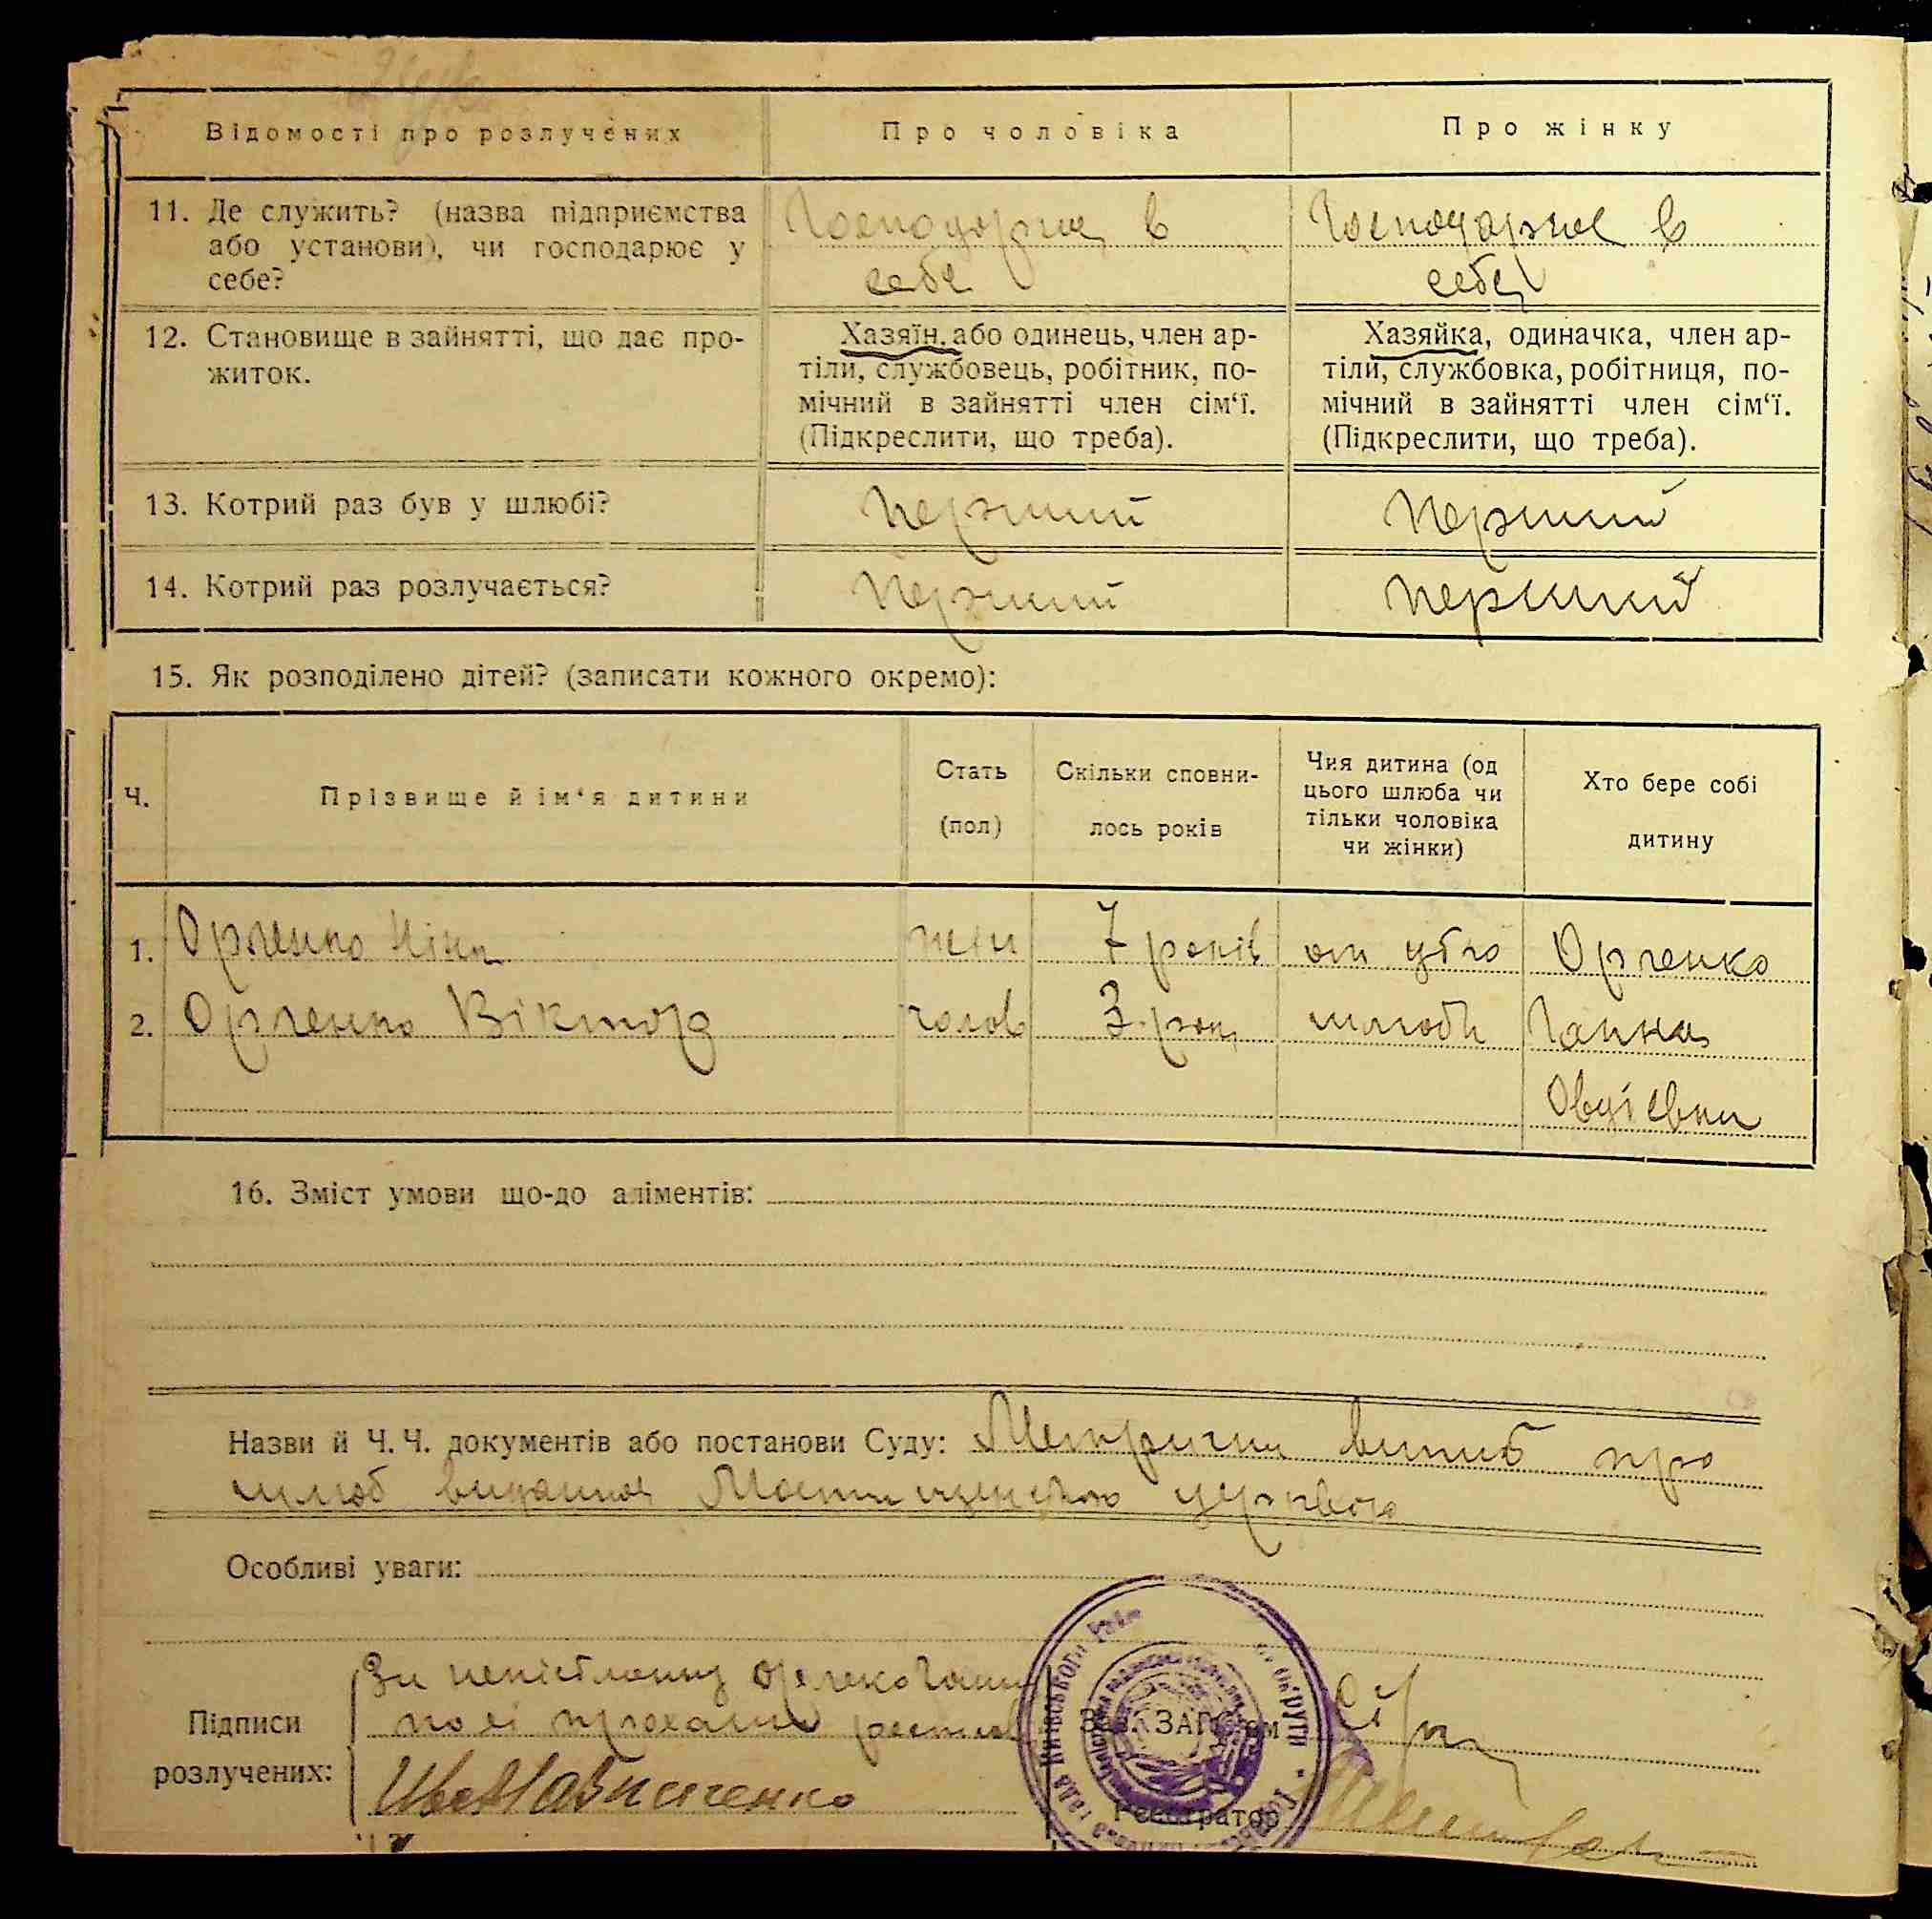 Відомості про розлучених
Про чоловіка
Про жінку
11. Де служить? (назва підприємства
або установи), чи господарює у
себе?
Господарює в
себе
Господарює в
себе
12. Становище в зайнятті, що дає про-
житок.
Хазяїн або одинець, член ар-
тіли, службовець, робітник, по-
мічний в зайнятті член сім‘ї.
(Підкреслити, що треба).
Хазяйка, одиначка, член ар-
тіли, службовка, робітниця, по-
мічний в зайнятті член сім‘ї.
(Підкреслити, що треба).
13. Котрий раз був у шлюбі?
перший
перший
14. Котрий раз розлучається?
перший
перший
15. Як розподілено дітей? (записати кожного окремо):
Ч.
Прізвище й ім‘я дитини
Стать
(пол)
Скільки сповни-
лось років
Чия дитина (од
цього шлюба чи
тільки чоловіка
чи жінки)
Хто бере собі
дитину
1. Орленко Ніна
жін
7 років
от цього
Орленко
2. Орленко Віктор
чолов
3 рок
шлюбу
Ганна
16. Зміст умови що-до аліментів:
Назви й Ч. Ч. документів або постанови Суду: Метричний випис про
шлюб виданная церквою
Особливі уваги:
Підписи
розлучених:
За неписьменну Орленко Ганну
по її проханню
Зав. ЗАГС'ом
Реєстратор
Київського
округи